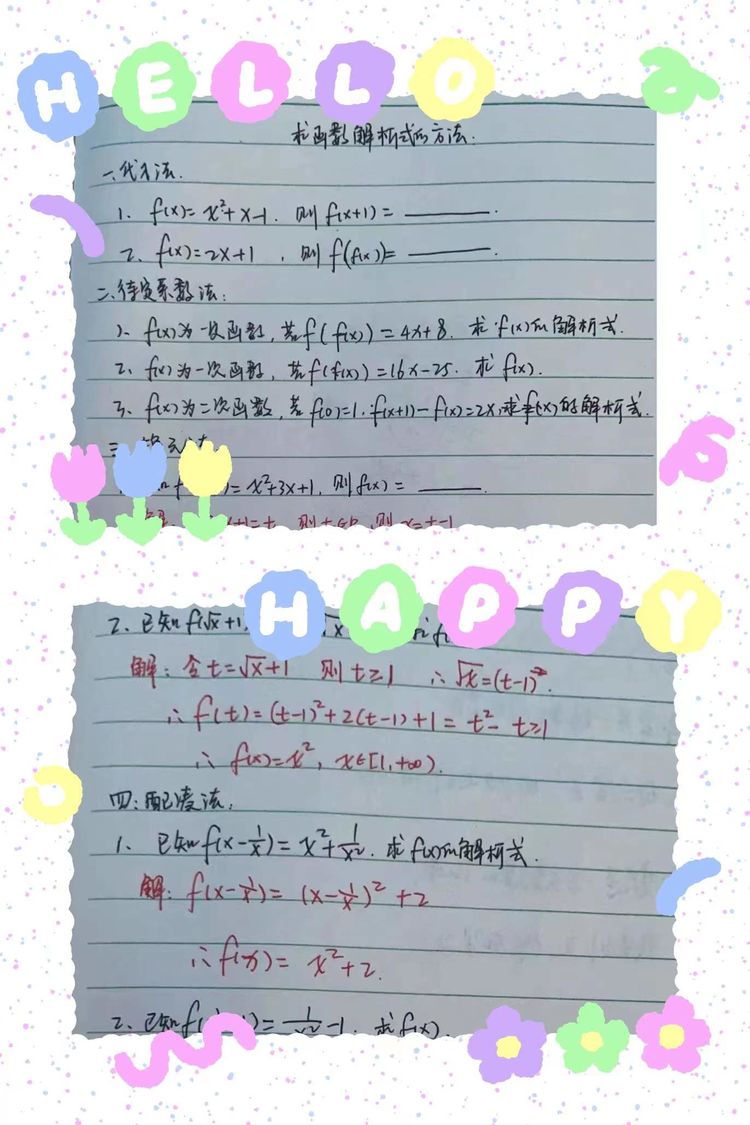 HELLO
求函数解析式的方法.
一、代入法.
1. f(x)=x²+x-1. 则f(x+1)= ______.
2. f(x)=2x+1 , 则f(f(x))= ______.
二、待定系数法:
1. f(x)为一次函数, 若f(f(x))=4x+8. 求f(x)的解析式.
2. f(x)为一次函数, 若f(f(x))=16x-25. 求f(x).
3. f(x)为二次函数, 若f(0)=1. f(x+1)-f(x)=2x, 求f(x)的解析式.
三
)=x²+3x+1, 则f(x)= ______.
+1=t 则t∈R, 则x=t-1
HAPPY
2. 已知f(√x+1
解: 令t=√x+1 则t≥1 ∴√x=(t-1)².
∴f(t)=(t-1)²+2(t-1)+1=t² t≥1
∴f(x)=x², x∈[1,+∞).
四: 配凑法:
1. 已知f(x-1/x)=x²+1/x². 求f(x)的解析式.
解: f(x-1/x)=(x-1/x)²+2
∴f(x)=x²+2.
2. 已知f( )= -1. 求f(x).